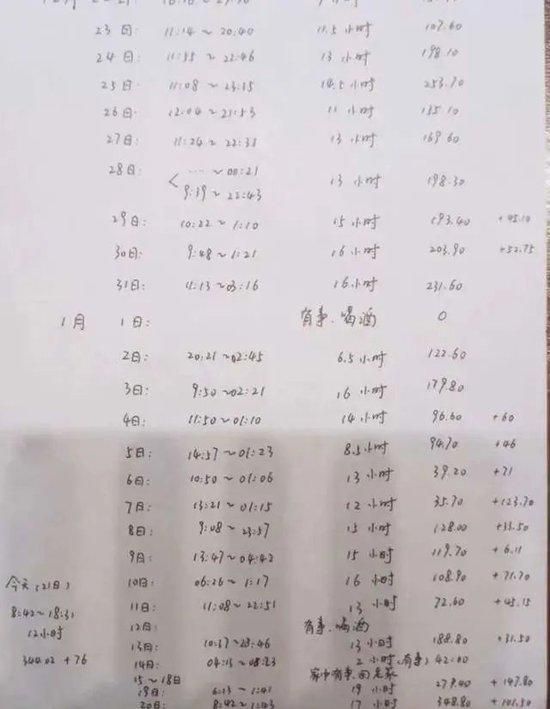 23日: 11:14~20:40 11.5小时 107.60
24日: 11:35~22:46 13小时 198.10
25日: 11:08~23:15 14.5小时 253.70
26日: 12:04~21:53 11小时 135.10
27日: 11:24~22:33 13小时 169.60
28日: < ...~00:21
9:39~22:43 13小时 198.30
29日: 10:22~1:10 15小时 193.40 +45.10
30日: 9:48~1:21 16小时 203.90 +52.75
31日: ~03:16 16小时 231.60
1月 1日: 有事、喝酒 0
2日: 20:21~02:45 6.5小时 122.60
3日: 9:50~02:21 16小时 179.80
4日: 11:50~01:10 14小时 96.60 +60
5日: 14:57~01:23 8.5小时 94.70 +46
6日: 10:50~01:06 13小时 39.20 +71
7日: 13:21~01:15 12小时 35.70 +123.70
8日: 9:08~23:57 15小时 128.00 +33.50
9日: 13:47~04:42 15小时 119.70 +6.11
今天(21日) 10日: 06:26~1:17 16小时 108.90 +71.70
8:42~18:31 11日: 11:08~22:51 13小时 72.60 +45.15
12小时 12日: 有事、喝酒
13日: 10:37~23:46 13小时 188.80 +31.50
344.02 +76 14日: 04:13~08:23 2小时(有事) 42.60
15~18日 家中有事、回老家
19日: 6:13~1:41 19小时 279.40 +147.80
20日: 8:42~1:43 17小时 348.80 +101.50